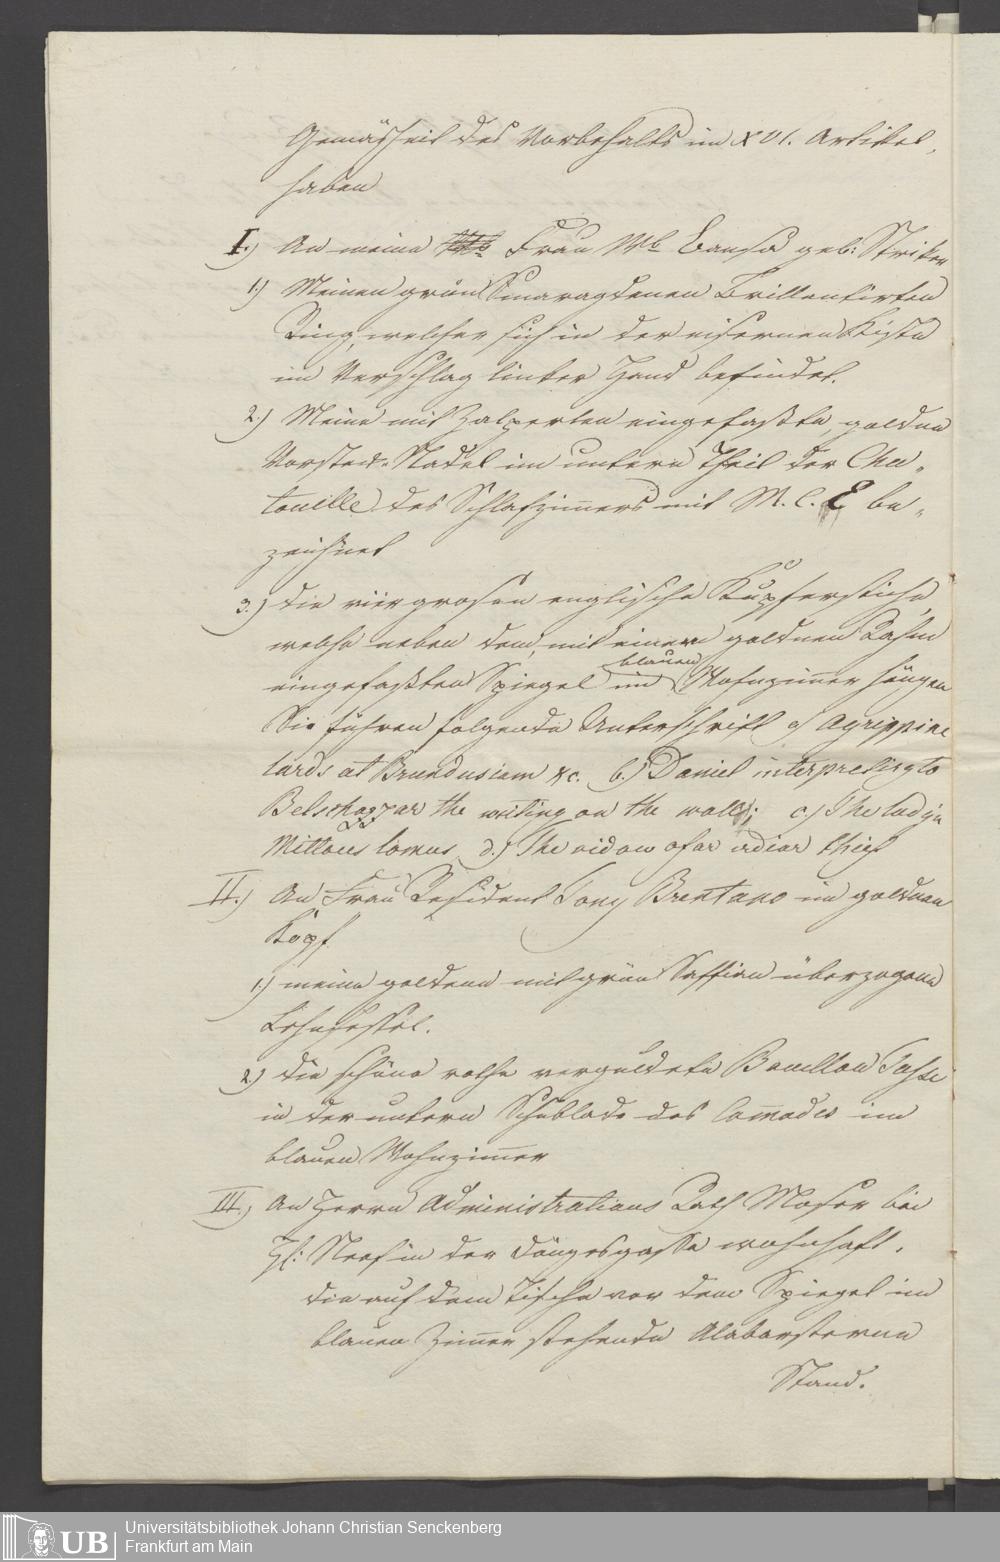 Gemäsheit des Vorbehalts im XVI. Artikel,
haben
I.) An meine Frau Mb Bansa geb: Striker
1.) Meinen grün Smaragdenen Brillantirten
Ring, welcher sich in der eisernen Kiste
im Verschlag linker Hand befindet.
2.) Meine mit Zalperlen eingefaßte, goldne
Vorsteck-Nadel im untern Theil der Cha„
touille des Schlafzimers mit M. C. E be„
zeichnet
3.) die vier grosen englische Kupferstiche,
welche neben dem, mit einem goldnen Rahm
blauen
eingefaßten Spiegel im Wohnzimer hängen
Sie führen folgende Unterschrift a) Agrippine
lards at Brundusium &c. b.) Daniel interpreting to
Belschazzar the writing on the wall; c.) The lady in
Miltons Comus d.) The vidow of an indian chief
II.) An Frau Resident Tony Brentano im goldnen
Kopf
1.) meine goldene mit grün Saffian überzogene
Lehnsessel.
2.) die schöne rothe verguldete Bouillon Tasse
in der untern Schublade des Comodes im
blauen Wohnzimer
III.) An Herrn Administrations Rath Moser bei
H: Neef in der Döngesgasse wohnhaft.
die auf dem Tische vor dem Spiegel im
blauen Zimer stehende Alabasterne
Stand.
UB
Universitätsbibliothek Johann Christian Senckenberg
Frankfurt am Main